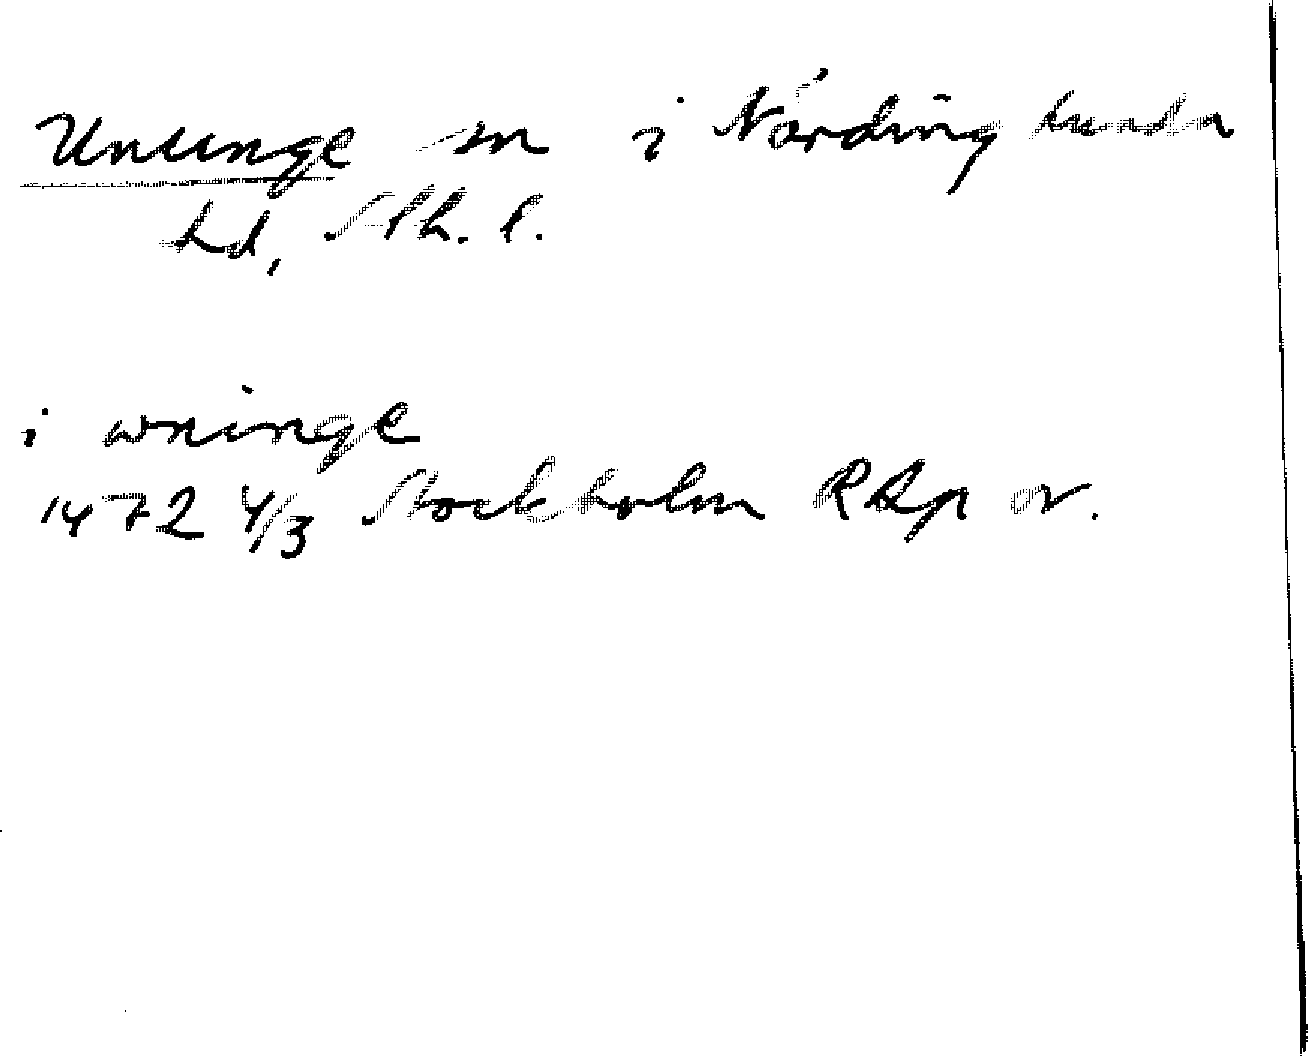 Ununge sn i Närdinghundra
hd, Sthl. l.
i wninge
1472 4/3 Stockholm RAp or.